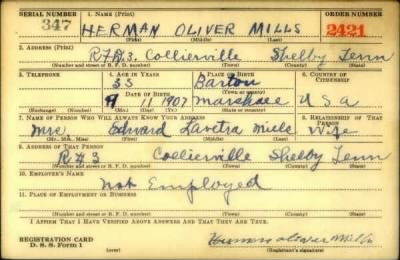 SERIAL NUMBER 1. NAME (Print) ORDER NUMBER
347 HERMAN OLIVER MILLS 2421
(First) (Middle) (Last)
2. ADDRESS (Print)
R.F.D.3. Collierville Shelby Tenn
(Number and street or R. F. D. number) (Town) (County) (State)
3. TELEPHONE 4. AGE IN YEARS 5. PLACE OF BIRTH 6. COUNTRY OF CITIZENSHIP
33 Barton
DATE OF BIRTH (Town or county)
11 1907 Marshall U S A
(Exchange) (Number) (Mo.) (Day) (Yr.) (State or country)
7. NAME OF PERSON WHO WILL ALWAYS KNOW YOUR ADDRESS 8. RELATIONSHIP OF THAT PERSON
Mrs Edward Mills Wife
(Mr., Mrs., Miss) (First) (Middle) (Last)
9. ADDRESS OF THAT PERSON
R#3 Collierville Shelby Tenn
(Number and street or R. F. D. number) (Town) (County) (State)
10. EMPLOYER'S NAME
Not Employed
11. PLACE OF EMPLOYMENT OR BUSINESS
(Number and street or R. F. D. number) (Town) (County) (State)
I AFFIRM THAT I HAVE VERIFIED ABOVE ANSWERS AND THAT THEY ARE TRUE.
REGISTRATION CARD
D. S. S. Form 1 Herman Oliver Mills
(Registrant's signature)